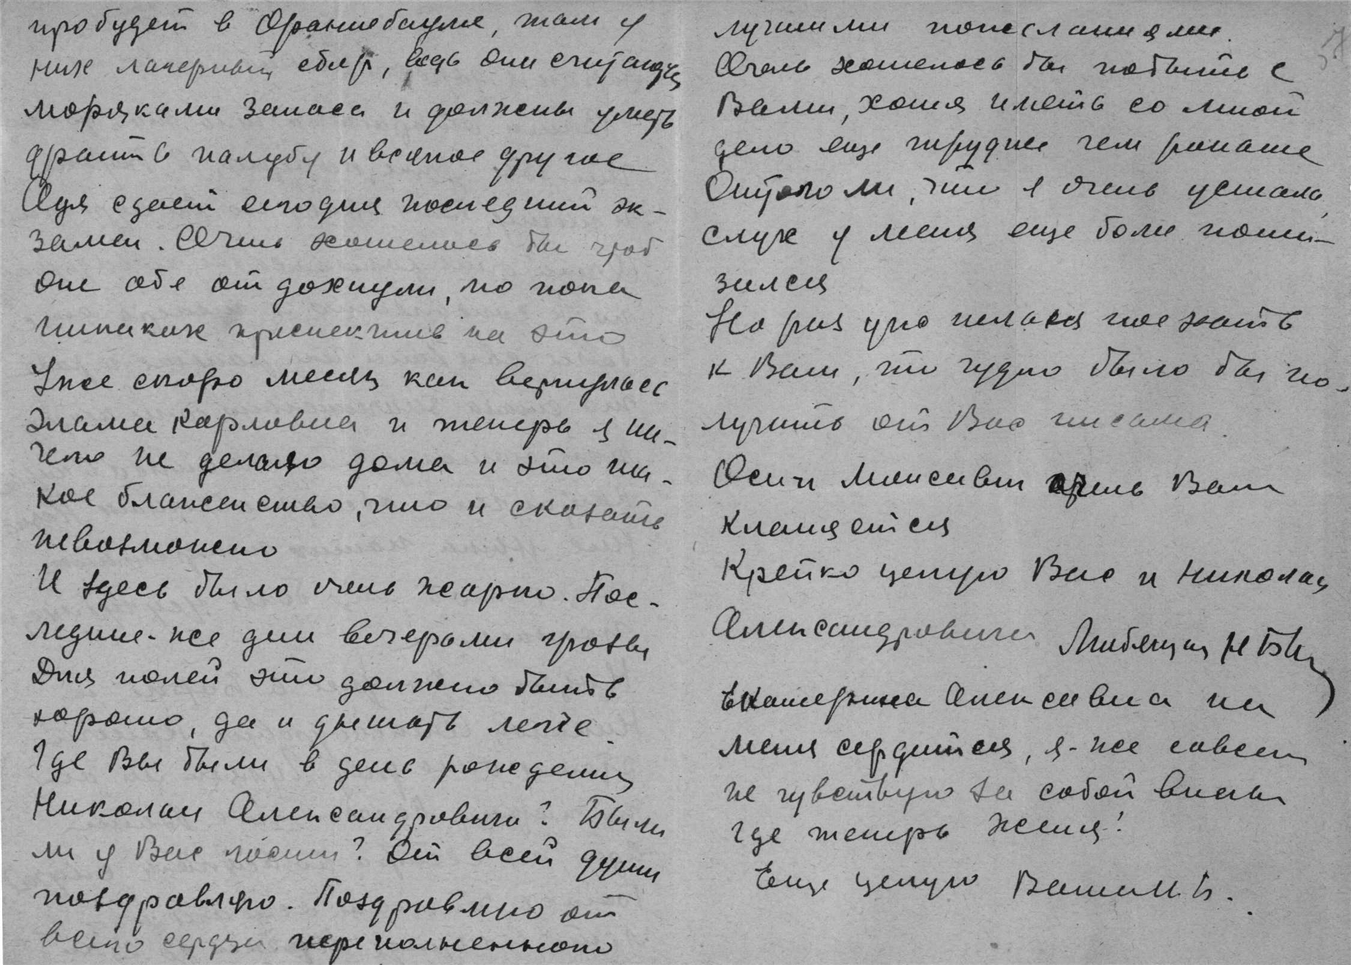 пробудет в Ораниебауме, там у
них лагерный сбор, ведь они считаются
моряками запаса и должны уметь
драить палубу и всякое другое
Ася сдает сегодня последний эк-
замен. Очень хотелось бы чтоб
они обе отдохнули, но пока
никаких проспектив на это
Уже скоро месяц как вернулась
Эмама Карловна и теперь я ни-
чего не делаю дома и это та-
кое блаженство, что и сказать
невозможно
И здесь было очень жарко. Пос-
ледние-же дни вечерами грозы
Для полей это должно быть
хорошо, да и дышать легче.
Где Вы были в день рождения
Николая Александровича? Были
ли у Вас гости? От всей души
поздравляю. Поздравляю от
всего сердца переполненного
лучшими пожеланиями.
Очень хотелось бы побыть с
Вами, хотя иметь со мной
дело еще труднее чем раньше
Оттого ли, что я очень устала,
слух у меня еще более пони-
зился
Но раз уже нельзя поехать
к Вам, то чудно было бы по-
лучить от Вас письма.
Осип Моисеевич очень Вам
кланяется
Крепко целую Вас и Николая
Александровича Любящая Н Б
Екатерина Алексеевна на
меня сердится, я-же совсем
не чувствую за собой вины
Где теперь Женя?
Еще целую Ваша Н.Б.